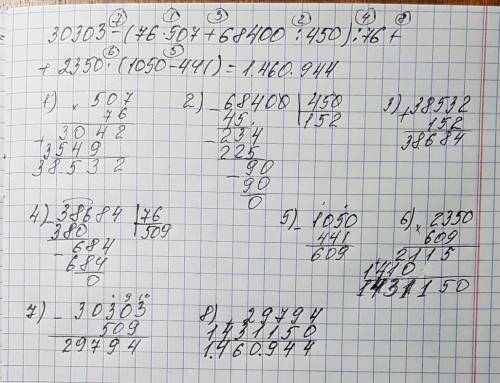 ⑦ ① ③ ② ④ ⑧
30303-(76·507+68400:450):76+
⑥ ⑤
+2350·(1050-441)=1.460.944
1) × 507
76
+ 3042
3549
38.532
2) - 68400 | 450
45 152
- 234
225
- 90
90
0
3) + 38532
152
38684
4) - 38684 | 76
380 509
- 684
684
0
5) - 1050
441
609
6) × 2350
609
2115
1410
1431150
7) - 30303
509
29794
8) + 29794
1431150
1.460.944